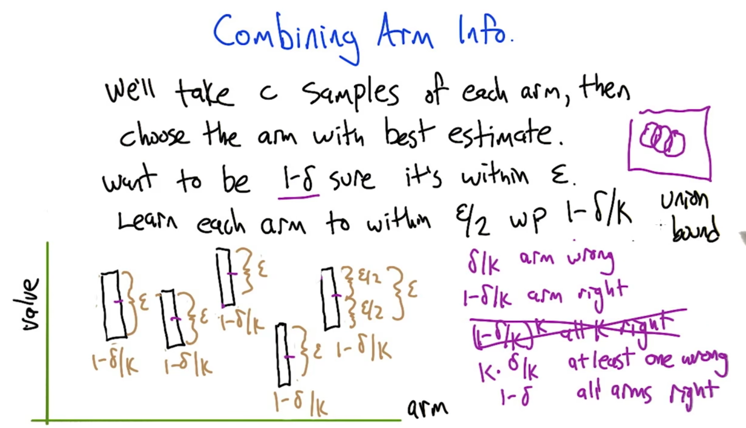 Combining Arm Info.
We'll take c samples of each arm, then
choose the arm with best estimate.
want to be 1-δ sure it's within ε.
Learn each arm to within ε/2 wp 1-δ/K
union
bound
value
ε
1-δ/K
ε
1-δ/K
ε
1-δ/K
ε
1-δ/K
ε/2
ε/2
ε
1-δ/K
arm
δ/K arm wrong
1-δ/K arm right
(1-δ/K)^K all K right
K. δ/K at least one wrong
1-δ all arms right